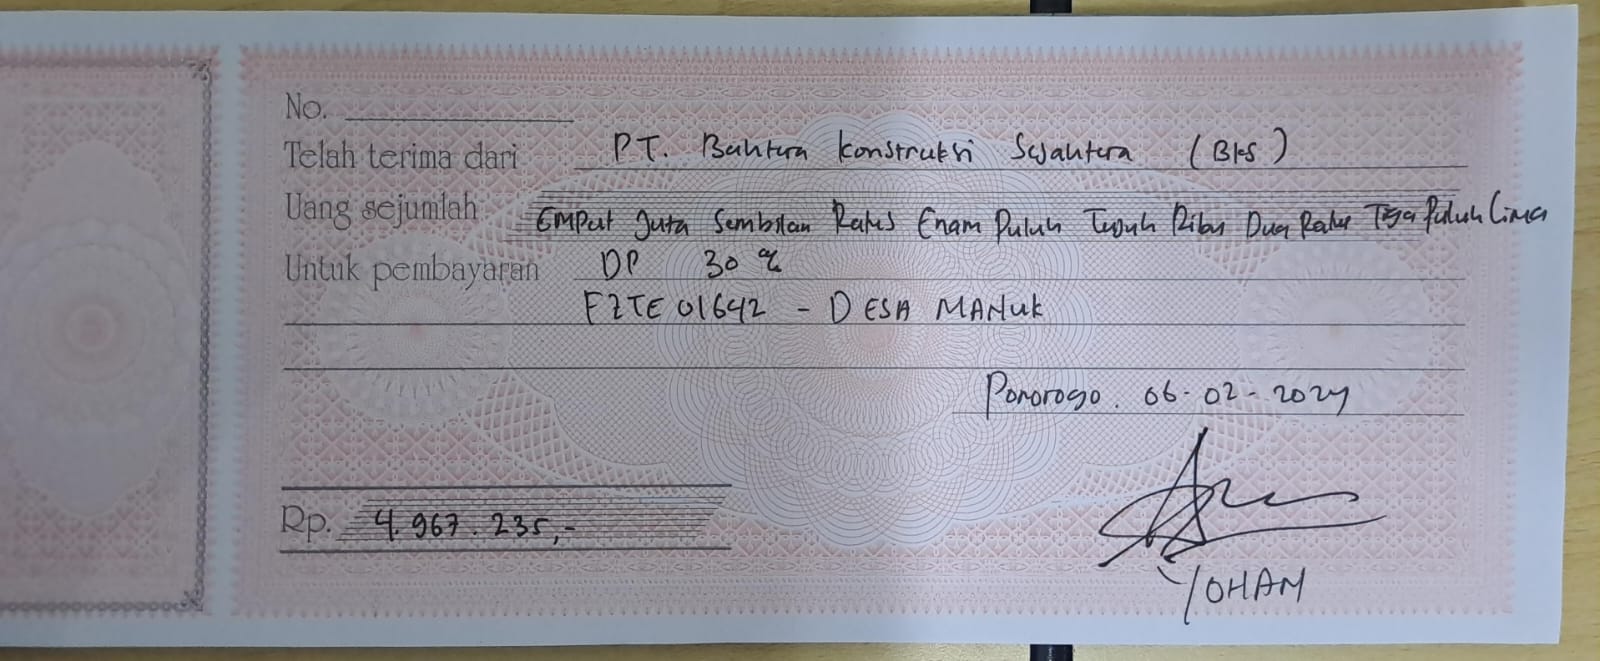 No.
Telah terima dari PT. Bahtera Konstruksi Sejahtera (BKS)
Uang sejumlah Empat Juta Sembilan Ratus Enam Puluh Tujuh Ribu Dua Ratus Tiga Puluh Lima
Untuk pembayaran DP 30 %
FZTE01642 - DESA MANUK
Ponorogo. 06-02-2024
Rp. 4.967.235,-
YOHAM